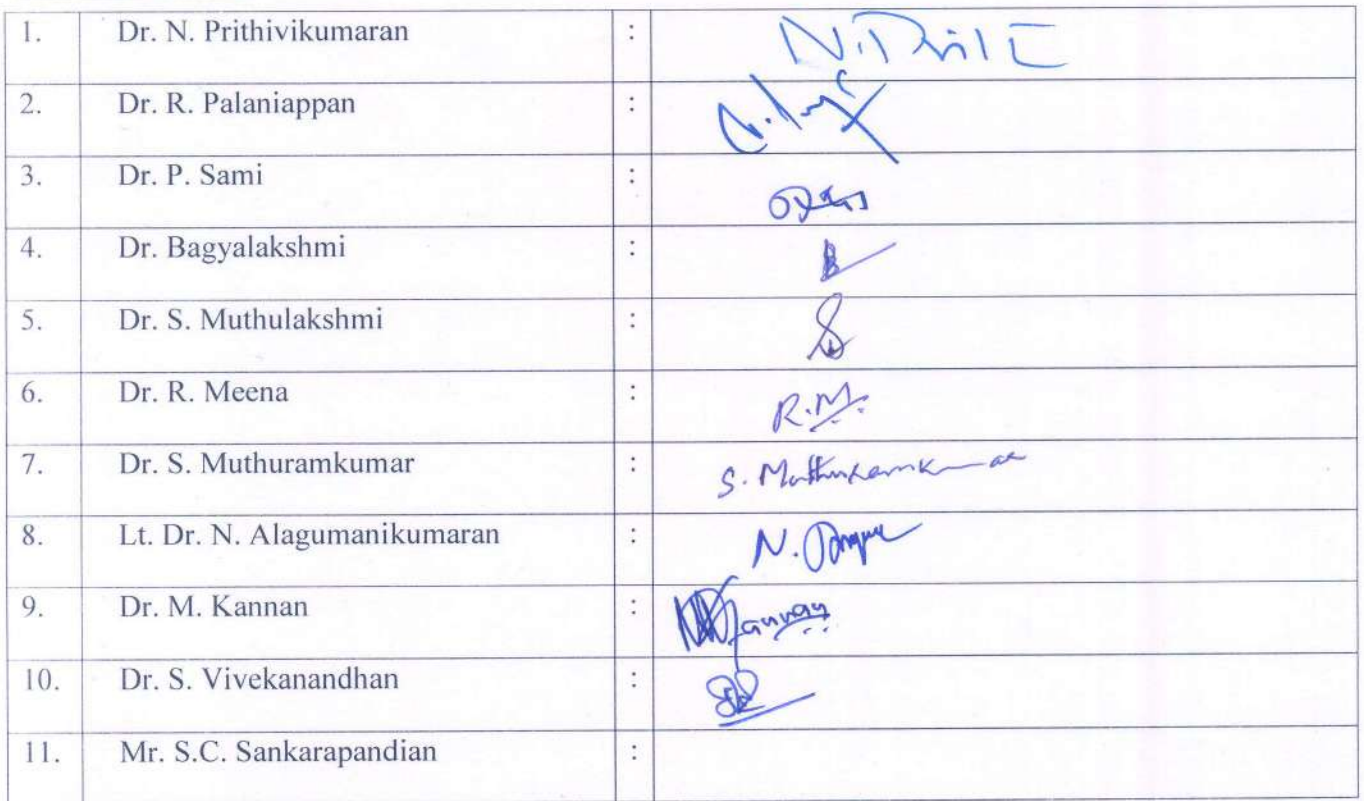 1. Dr. N. Prithivikumaran :
2. Dr. R. Palaniappan :
3. Dr. P. Sami :
4. Dr. Bagyalakshmi :
5. Dr. S. Muthulakshmi :
6. Dr. R. Meena : R.M.
7. Dr. S. Muthuramkumar : S. Muthuramkumar
8. Lt. Dr. N. Alagumanikumaran : N.
9. Dr. M. Kannan :
10. Dr. S. Vivekanandhan :
11. Mr. S.C. Sankarapandian :